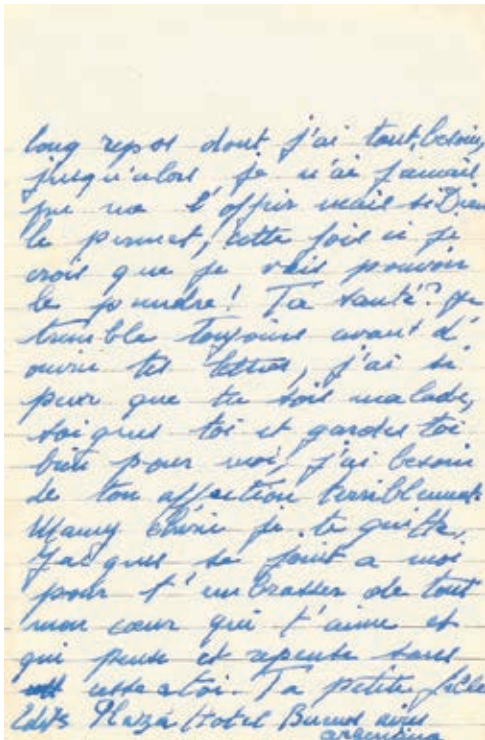 long repos dont j'ai tout besoin,
jusqu'alors je n'ai jamais
pu me l'offrir mais si Dieu
le permet, cette fois ci je
crois que je vais pouvoir
le prendre! Ta santé? Je
tremble toujours avant d'
ouvrir tes lettres, j'ai si
peur que tu sois malade,
soignes toi et gardes toi
bien pour moi, j'ai besoin
de ton affection terriblement.
Mamy chérie je te quitte,
Jacques se joint a moi
pour t'embrasser de tout
mon cœur qui t'aime et
qui pense et repense sans
cesse a toi. Ta petite fille
Edit Plaza Hotel Buenos aires
argentina